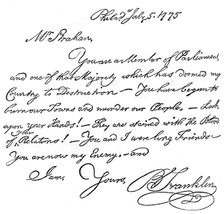 Philad.ᵃ July 5. 1775
Mr. Strahan,
You are a Member of Parliament,
and one of that Majority which has doomed my
Country to Destruction. — You have begun to
burn our Towns and murder our People. — Look
upon your Hands! — They are stained with the Blood
of your Relations! — You and I were long Friends: —
You are now my Enemy, — and
I am,
Yours,
B Franklin